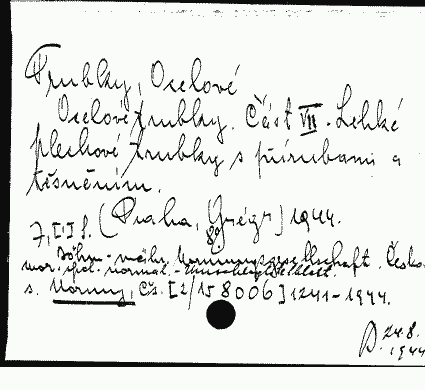 Trubky, Ocelové
Ocelové trubky. Část VII. Lehké
plechové trubky s přírubami a
těsněním.
7, [I] s. (Praha, Grégr) 1944.
8°.
Böhm.-mähr. Normungsgesellschaft. Česko-
mor. spol. normal. -
s. Normy, čís. [2/158006] 1241-1944.
24.8.
1944